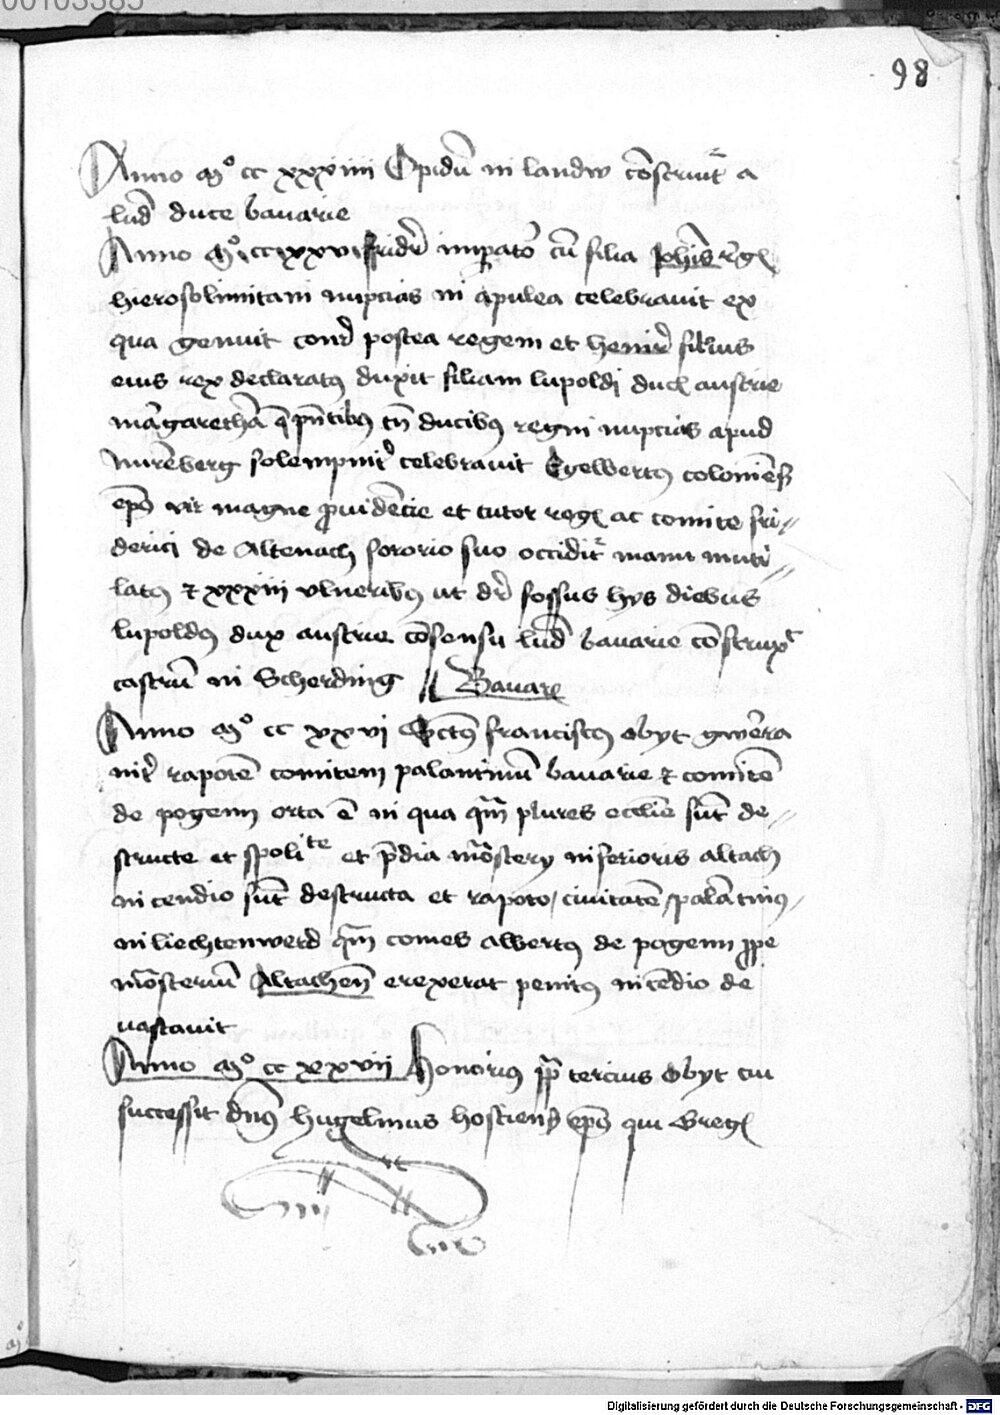 00103385
98
Anno mº cc xxxiiii Opidū in landw cōstruit͛ a
lud̄ duce bavarie
Anno Mº ccxxvi fridr̄ imꝑatō cū filia Johīs reḡ
hierosolimitani nupcias in apulea celebravit ex
qua genuit conr̄ postea regem et heinr̄ filius
eius rex declaratꝰ duxit filiam lupoldi duc̄ austrie
margarethā q̄ pn̄tibꝰ ducibꝰ regni nupcias apud
Nurēberg solempnit͛ celebravit Egelbertꝰ coloniēs̄
ep̄s vir magne ꝓvidēcie et tutor reḡ ac comite fri//
derici de Altenach sororio suo occidit͛ manu muti//
latꝰ ⁊ xxxiii vlneribꝰ ut dr̄ fossus hys diebus
lupoldꝰ dux austrie cōsensu lud̄ bavarie cōstruxᵗ
castrū in Scherding // Bavar̄
Anno mº cc xxvi Sctꝰ franciscꝰ obyt gwerra
int͛ rapotē comitem palantinū bavarie ⁊ comitē
de pogenn orta ē in qua qm̄ plures ecclīe sūt de//
structe et spoliᵗᵉ et p̄dia mōstery inferioris altach
incendio sūt destructa et rapoto / civitatē / palātinꝰ/
in liechtenwerd qm̄ comes albertꝰ de pogenn ꝓpe
mōsteriū Altachen̄ erexerat penitꝰ incēdio de
vastavit
Anno mº cc xxvii Honorius pp̄ tercius obyt cui
successit dn̄s hugelinus hostiens̄ ep̄s qui Greḡ
Digitalisierung gefördert durch die Deutsche Forschungsgemeinschaft - DFG